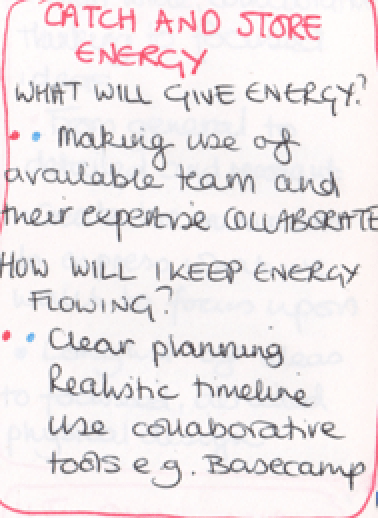 CATCH AND STORE
ENERGY
WHAT WILL GIVE ENERGY?
• • Making use of
available team and
their expertise COLLABORATE
HOW WILL I KEEP ENERGY
FLOWING?
• • Clear planning
Realistic timeline
use collaborative
tools e.g. Basecamp